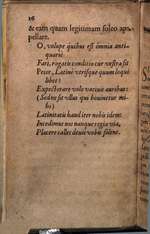 16
& eam quam legitimam soleo ap-
pellare.
O, volupe quibus est omnia anti-
quaria
Fari, rogatu conditio cur vestra sit
Petor, Latinè verisque quum loqui
libet?
Expectorare volo vacuis auribus:
(Sed ne sit ullus qui bovinetur mi-
hi)
Latinitatis haud iter nobis idem:
Incedimus nos namque regia via,
Placere calles devii vobis solent.